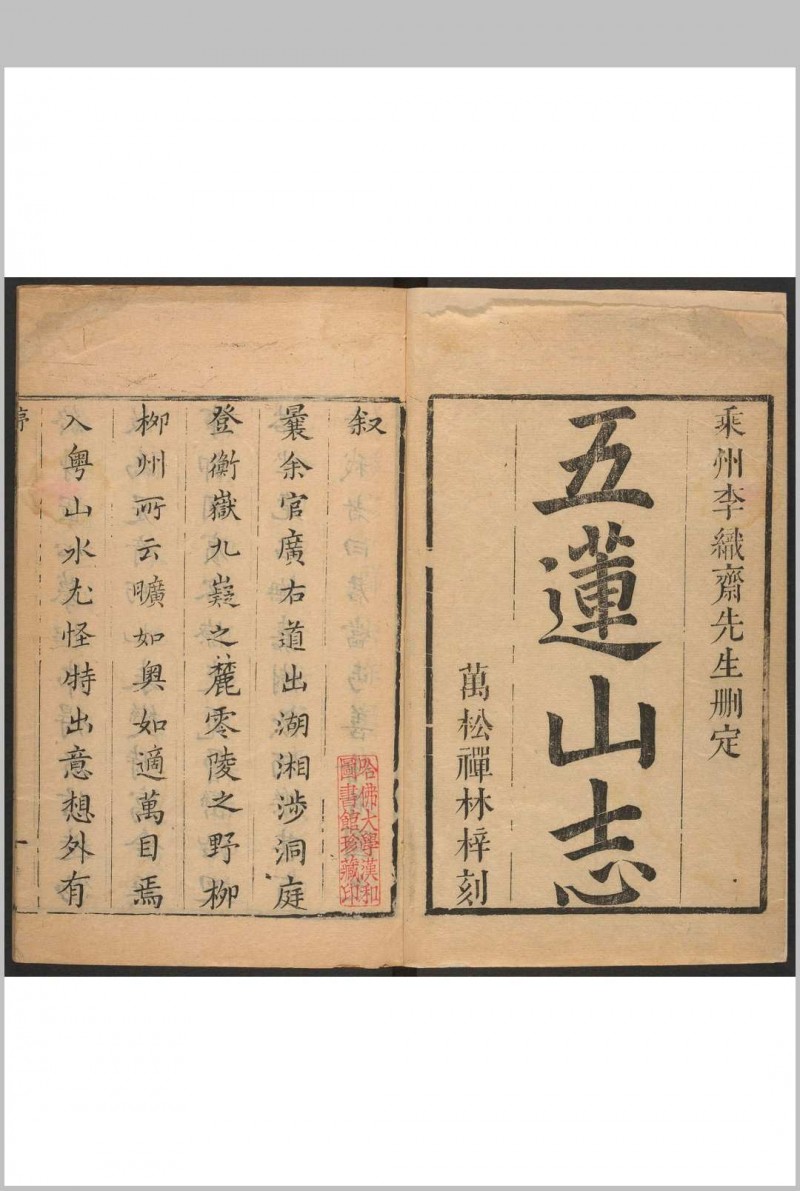 乘州李織齋先生刪定
五蓮山志
萬松禪林梓刻
叙
曩余官廣右道出湖湘涉洞庭
登衡嶽九嶷之麓零陵之野柳
柳州所云曠如奥如適萬目焉
入粤山水尤怪特出意想外有
哈佛大學漢和
圖書館珍藏印